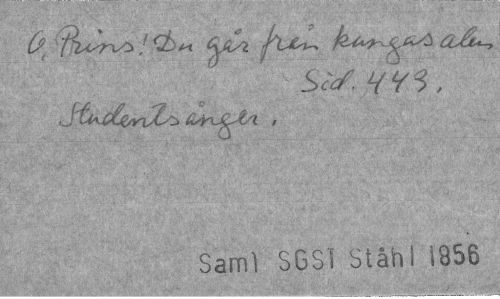 O, Prins! Du går från kungasalen
Sid. 443.
Studentsånger.
Saml SGST Ståhl 1856